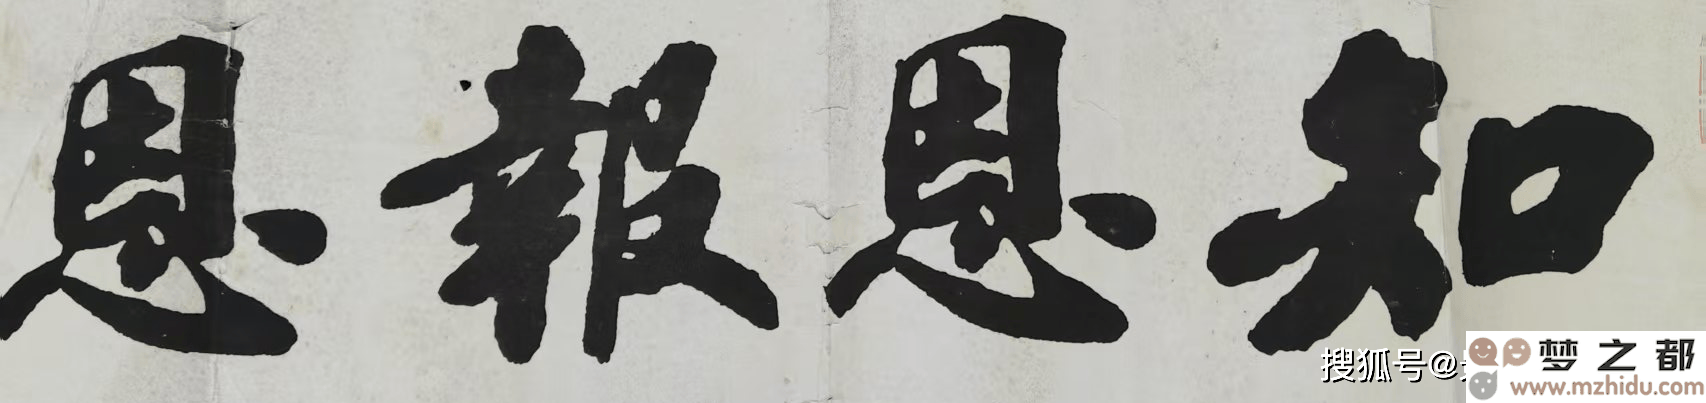 知恩報恩
搜狐号@
梦之都
www.mzhidu.com